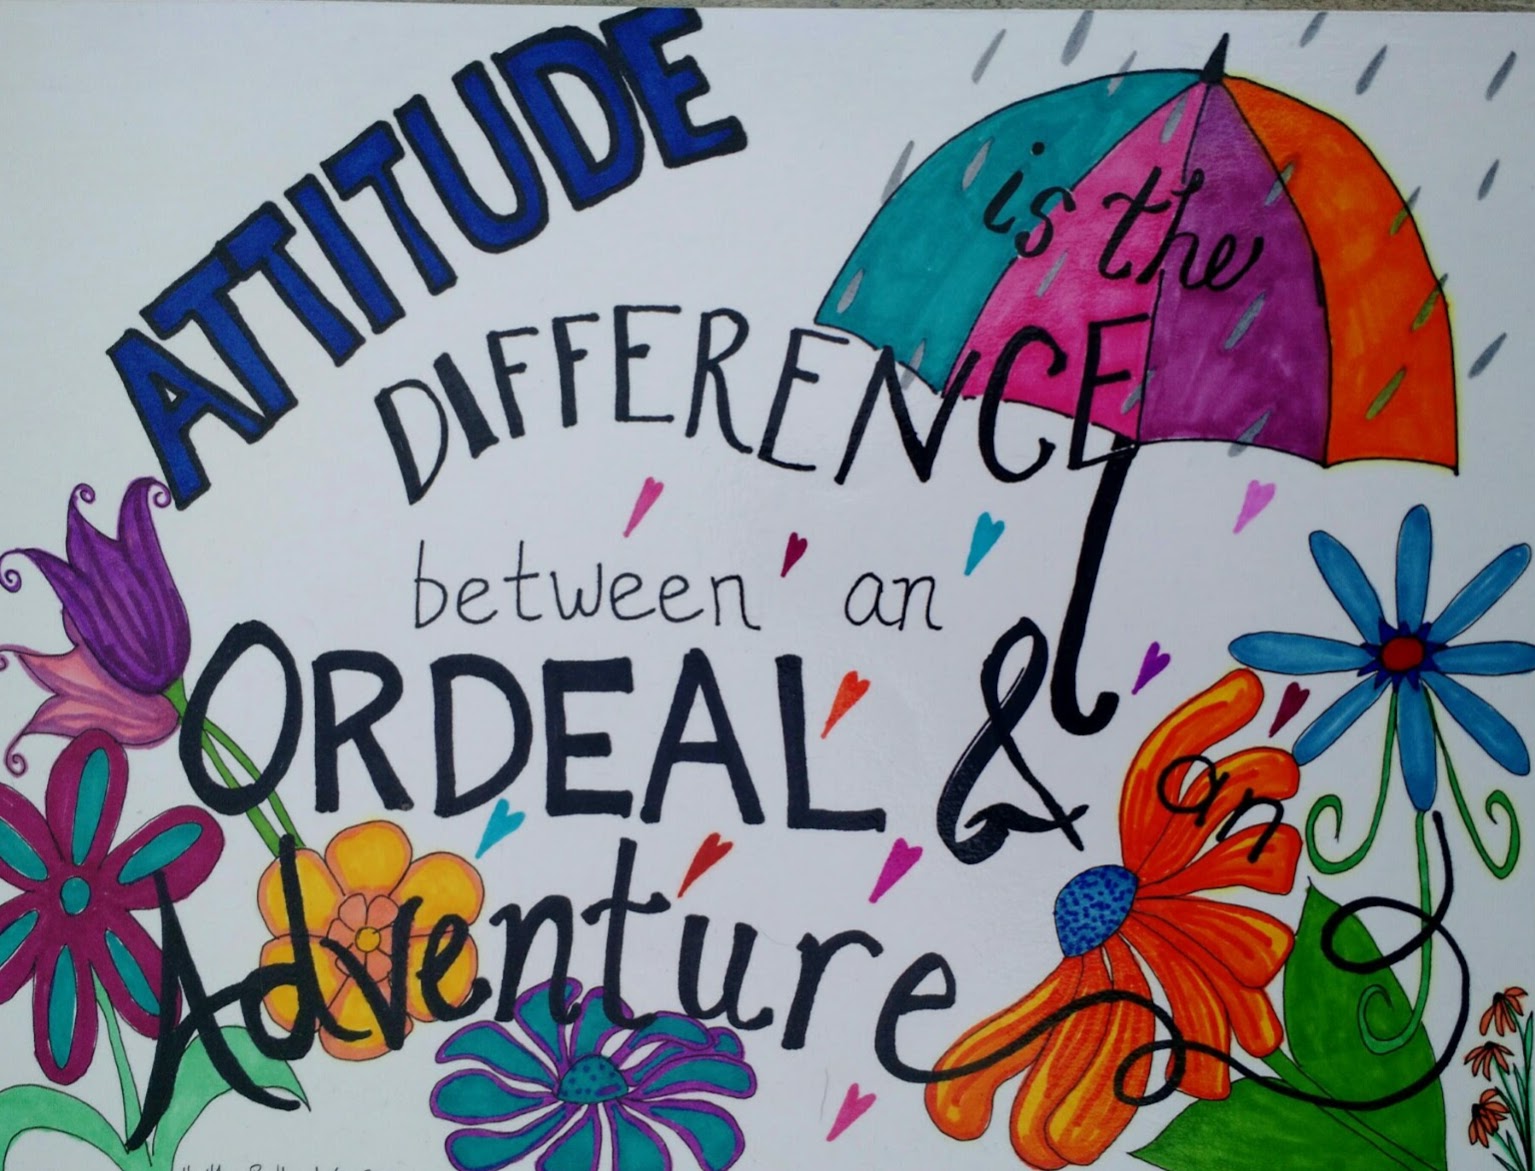 ATTITUDE
is the
DIFFERENCE
between an
ORDEAL & an
Adventure